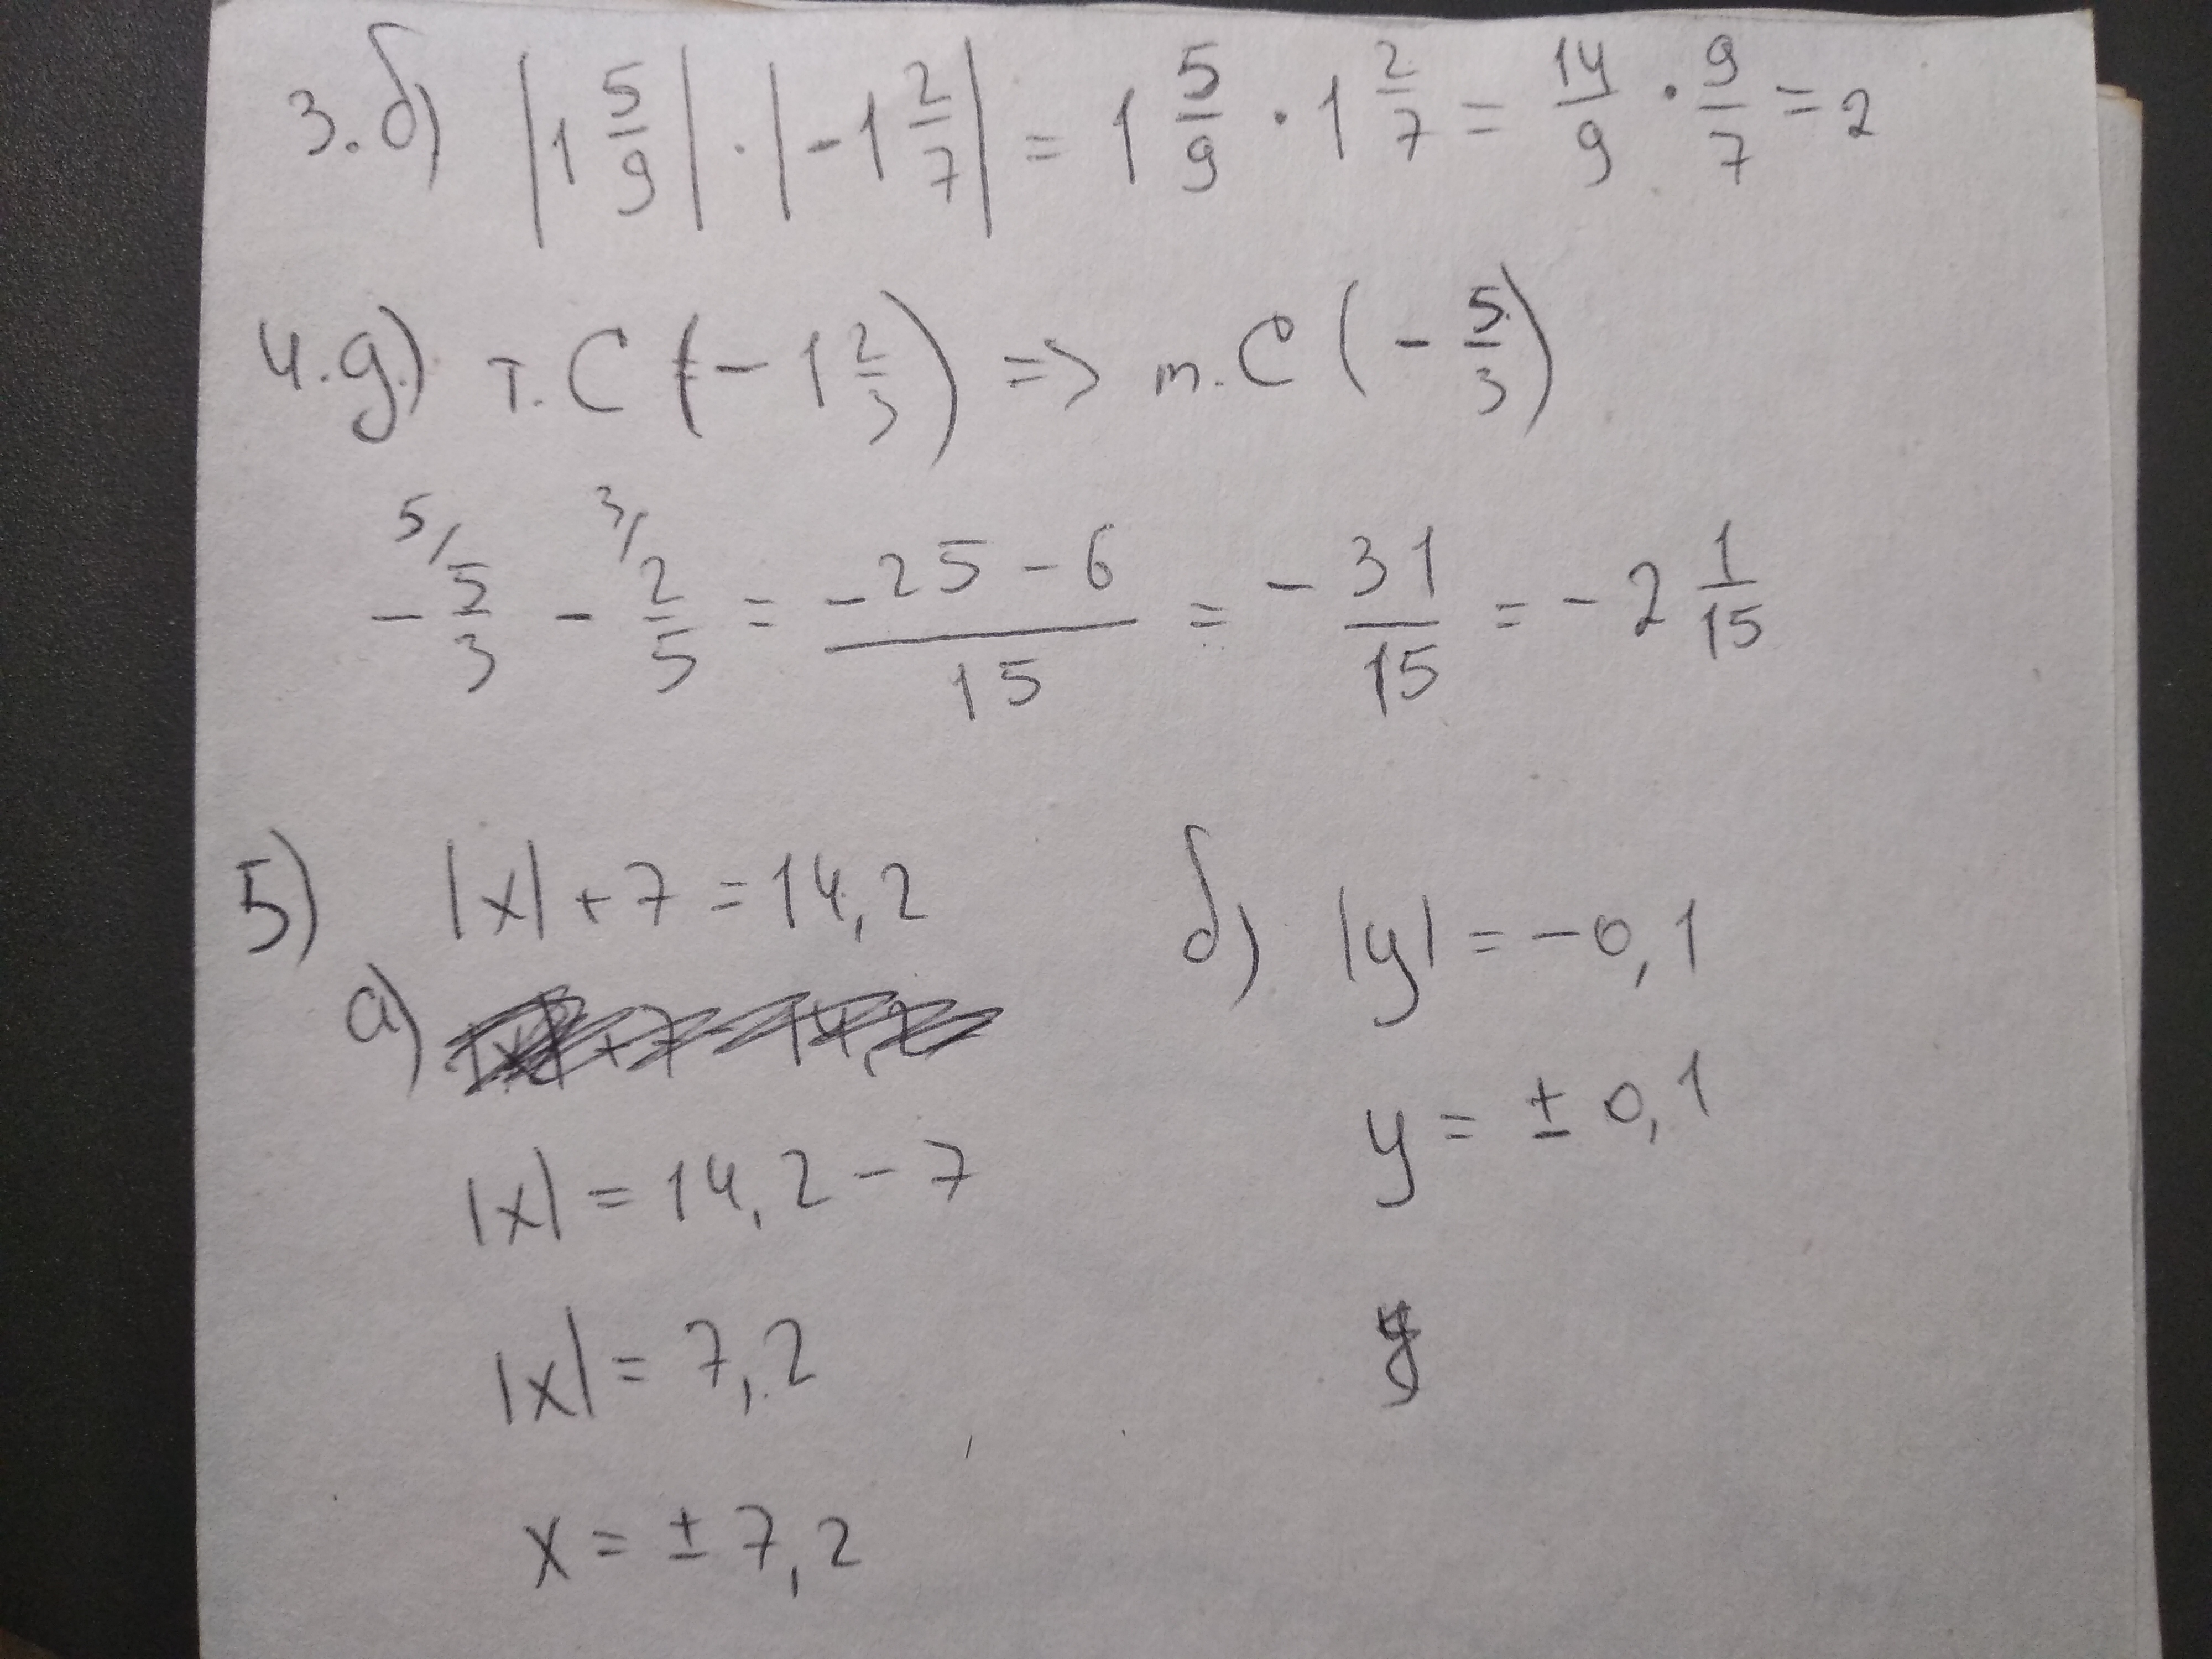 3.б) |1 5/9| · |-1 2/7| = 1 5/9 · 1 2/7 = 14/9 · 9/7 = 2
4.g.) т. С (-1 2/3) => т. С (- 5/3)
5/ 3/
- 5/3 - 2/5 = (-25 - 6)/15 = - 31/15 = -2 1/15
5) |x| + 7 = 14,2
а)
|x| = 14,2 - 7
|x| = 7,2
x = ± 7,2
б) |y| = -0,1
y = ± 0,1
y